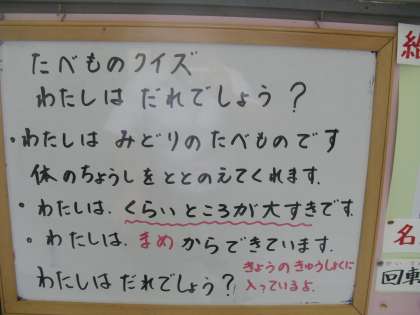 たべものクイズ
わたしは だれでしょう？
・わたしは みどりのたべものです
体のちょうしをととのえてくれます。
・わたしは、くらいところが大すきです。
・わたしは、まめからできています。
わたしはだれでしょう？
きょうのきゅうしょくに
入っているよ。
給
名
回転